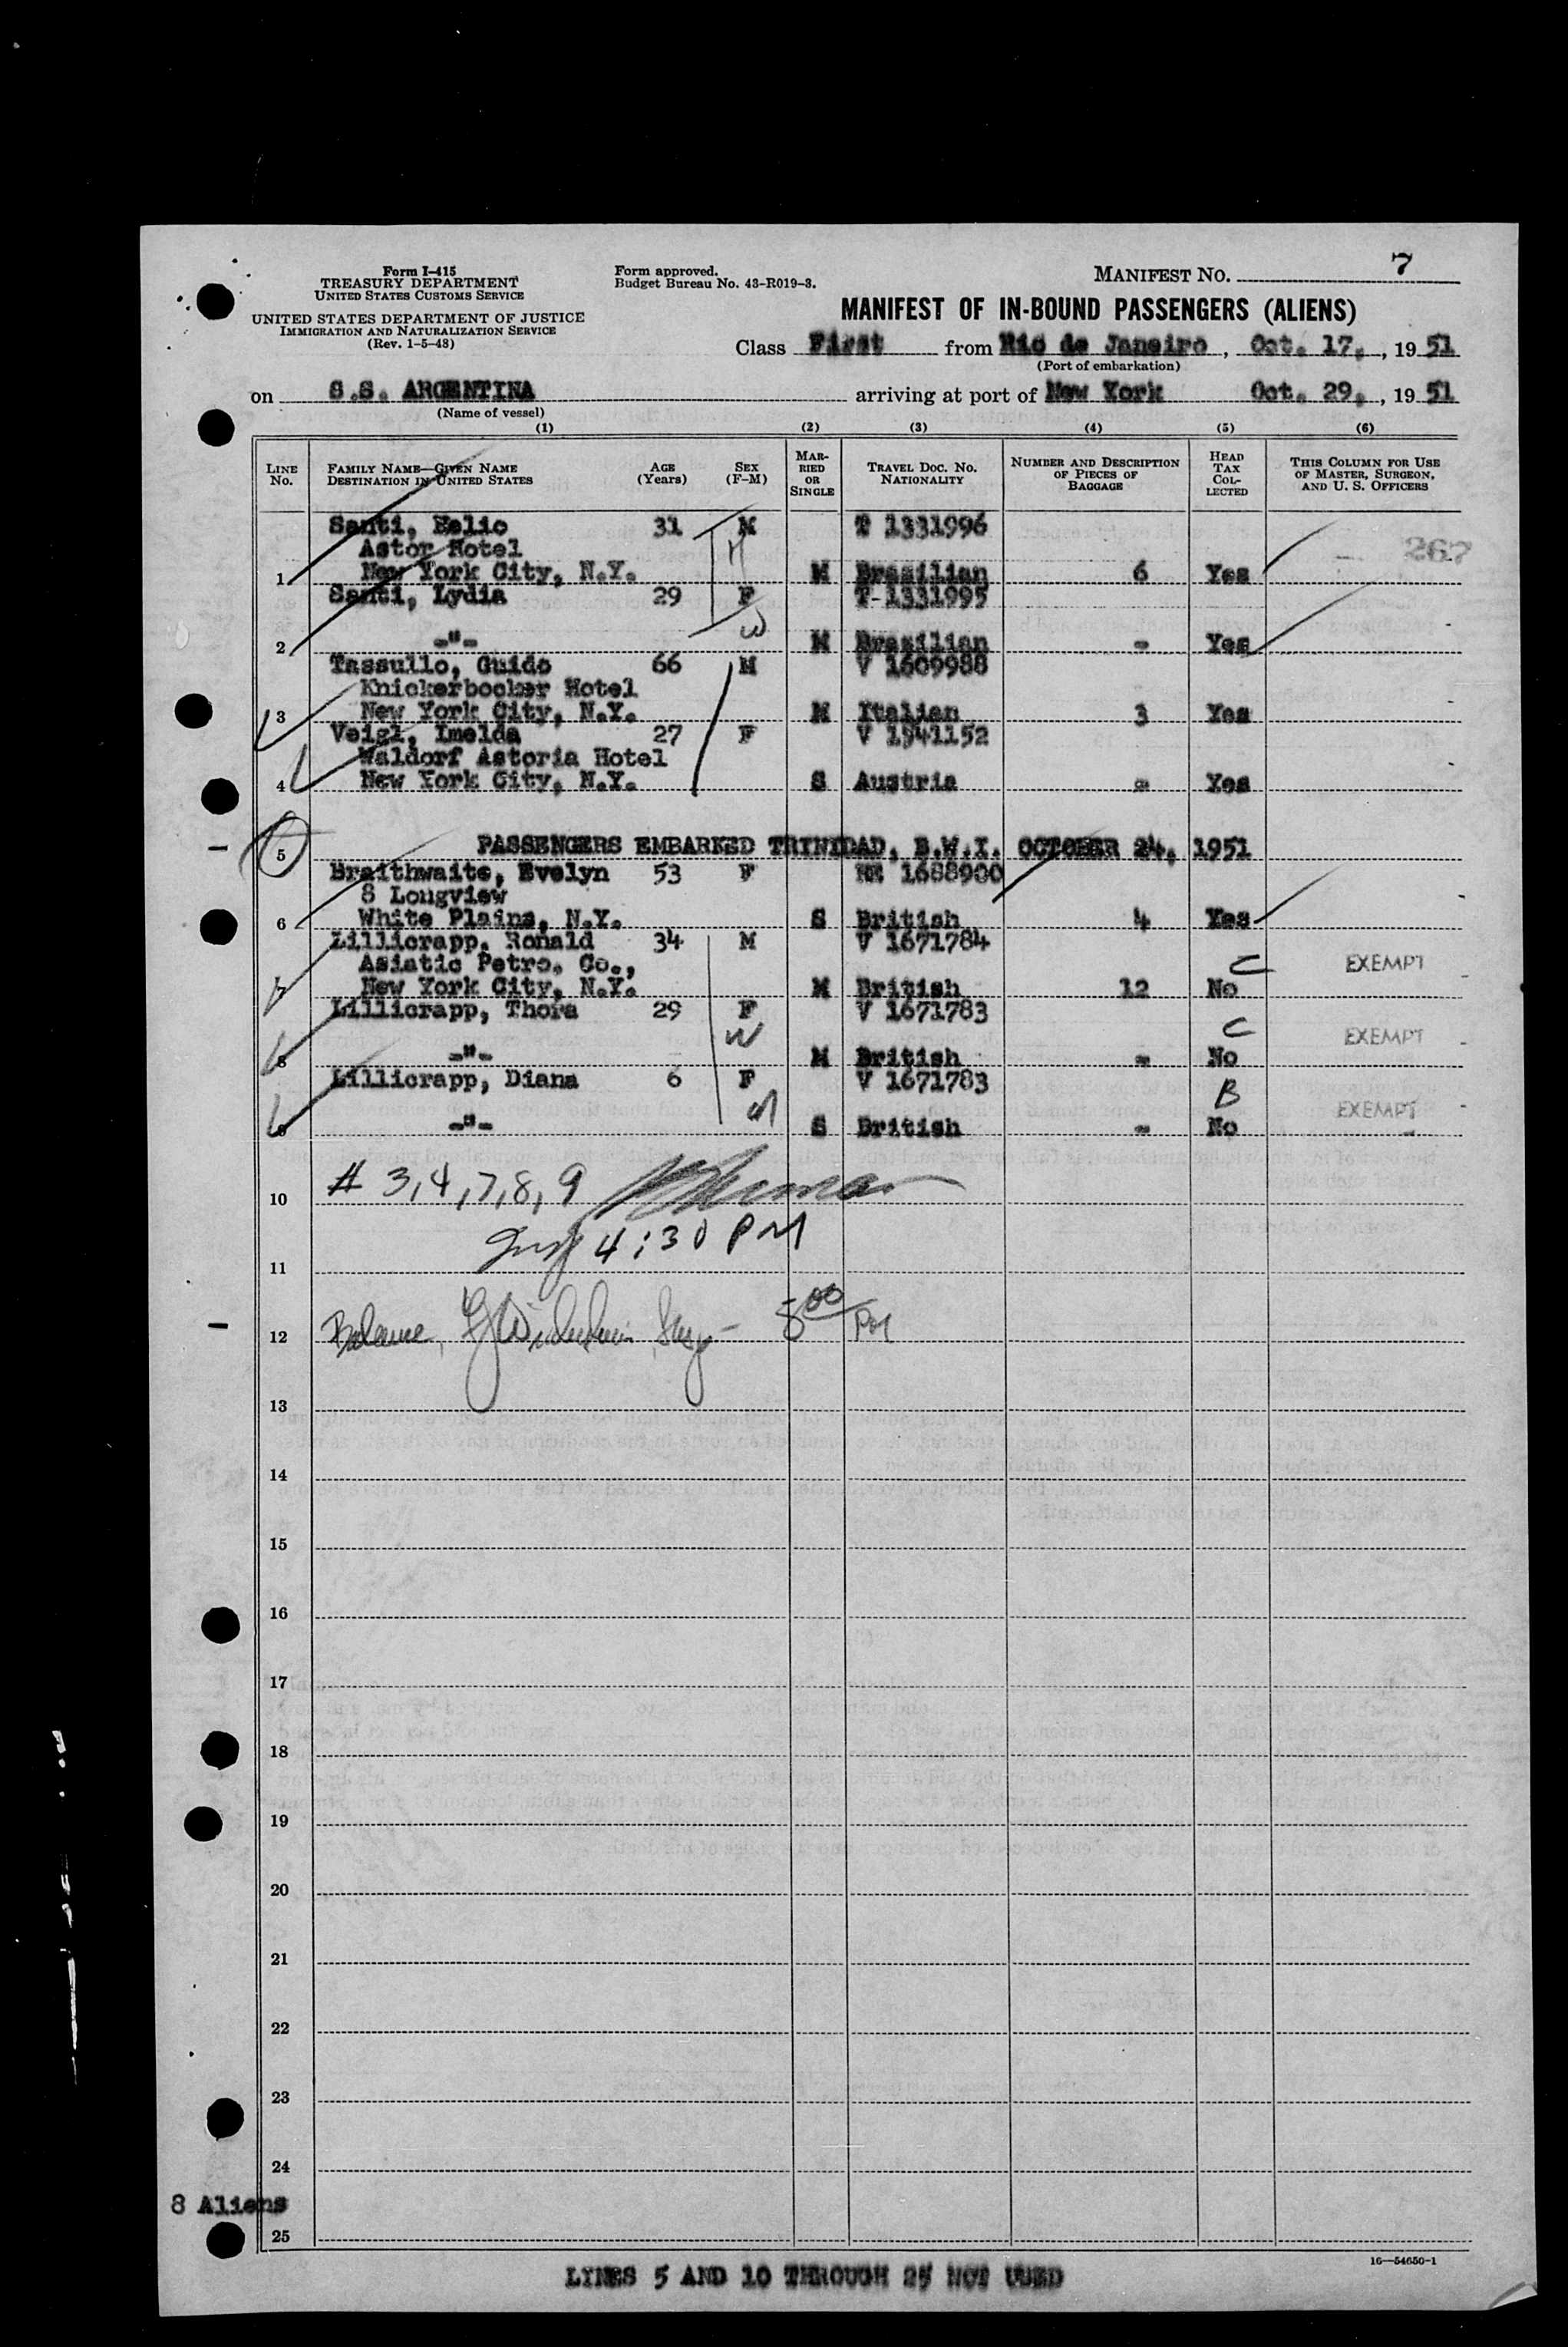 Form I-415
TREASURY DEPARTMENT
UNITED STATES CUSTOMS SERVICE
UNITED STATES DEPARTMENT OF JUSTICE
IMMIGRATION AND NATURALIZATION SERVICE
(Rev. 1-5-48)
Form approved.
Budget Bureau No. 43-R019-3.
MANIFEST NO. 7
MANIFEST OF IN-BOUND PASSENGERS (ALIENS)
Class First from Rio de Janeiro, Oct. 17, , 19 51
(Port of embarkation)
on S.S. ARGENTINA arriving at port of New York Oct. 29, , 19 51
(Name of vessel)
(1) (2) (3) (4) (5) (6)
LINE No. FAMILY NAME—GIVEN NAME DESTINATION IN UNITED STATES AGE (Years) SEX (F-M) MARRIED OR SINGLE TRAVEL DOC. NO. NATIONALITY NUMBER AND DESCRIPTION OF PIECES OF BAGGAGE HEAD TAX COLLECTED THIS COLUMN FOR USE OF MASTER, SURGEON, AND U. S. OFFICERS
Santi, Helio 31 M T 1331996
Astor Hotel H 267
1 New York City, N.Y. M Brazilian 6 Yes
Santi, Lydia 29 F T-1331995
W
2 -"- M Brazilian - Yes
Tassullo, Guido 66 M V 1609988
Knickerbocker Hotel
3 New York City, N.Y. M Italian 3 Yes
Veigl, Imelda 27 F V 1941152
Waldorf Astoria Hotel
4 New York City, N.Y. S Austria - Yes
5 PASSENGERS EMBARKED TRINIDAD, B.W.I. OCTOBER 24, 1951
Braithwaite, Evelyn 53 F RE 1688900
8 Longview
6 White Plains, N.Y. S British 4 Yes
Lillicrapp, Ronald 34 M V 1671784
Asiatic Petro. Co., C EXEMPT
7 New York City, N.Y. M British 12 No
Lillicrapp, Thora 29 F V 1671783
W C EXEMPT
8 -"- M British - No
Lillicrapp, Diana 6 F V 1671783
B EXEMPT
9 -"- S British - No
# 3,4,7,8,9
10
4:30 PM
11
Balance, 5 00 PM
12
13
14
15
16
17
18
19
20
21
22
23
24
8 Aliens
25
16—54650-1
LINES 5 AND 10 THROUGH 25 NOT USED